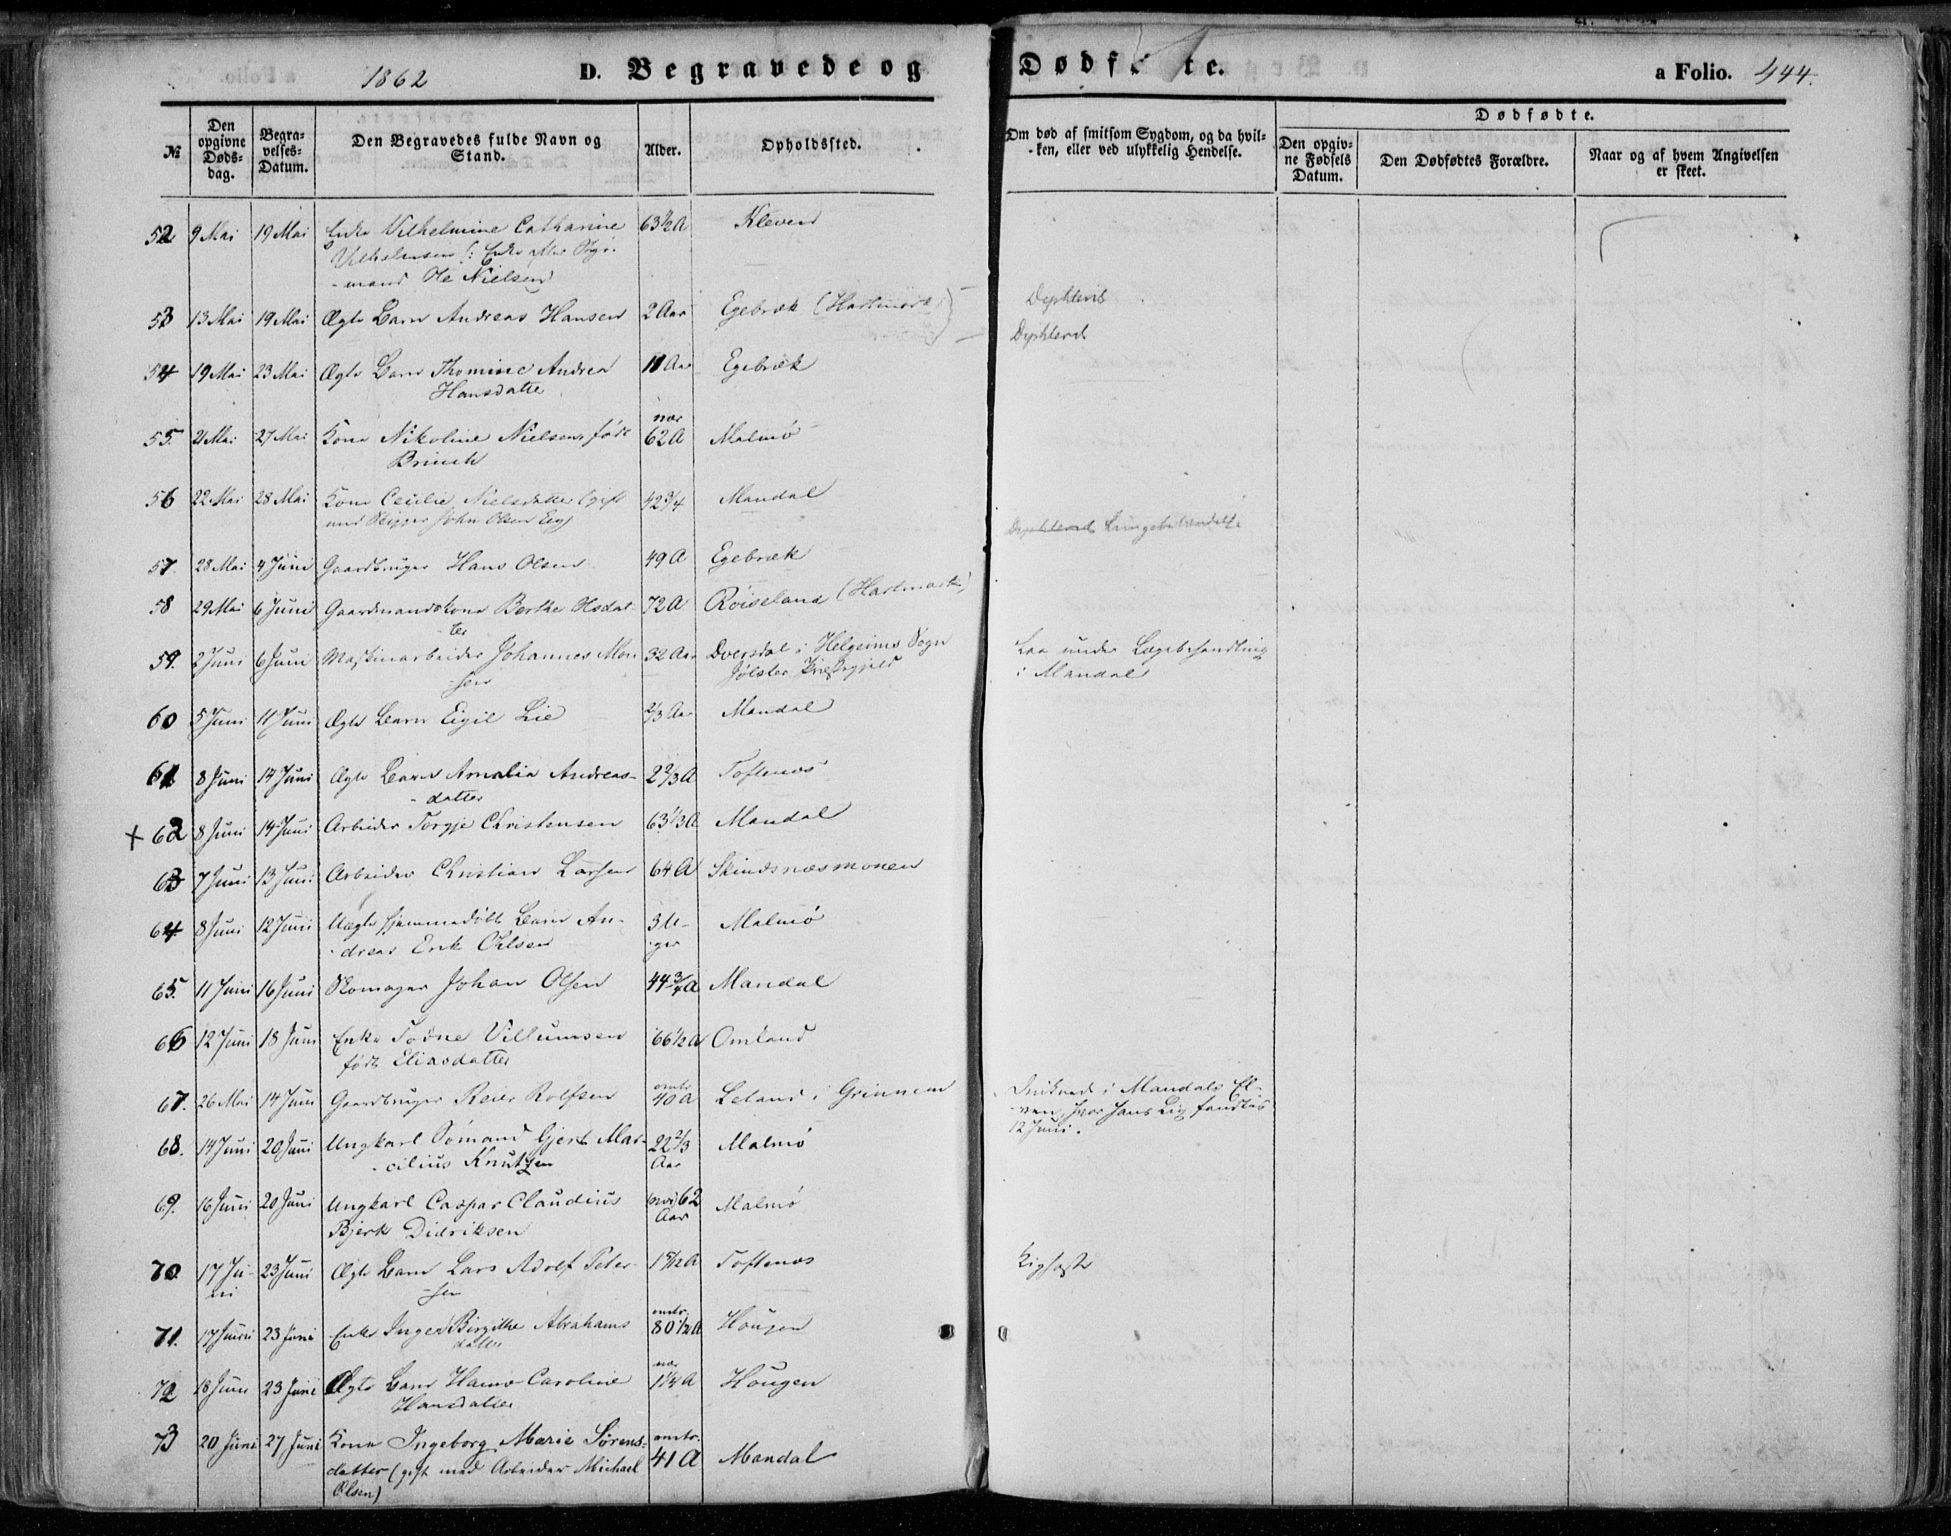 1862
D. Begravede og Dødfødte.
a Folio. 444.
№
Den opgivne Døds-dag.
Begra-velses-Datum.
Den Begravedes fulde Navn og Stand.
Alder.
Opholdssted.
Om død af smitsom Sygdom, og da hvil-ken, eller ved ulykkelig Hendelse.
Dødfødte.
Den opgiv-ne Fødsels Datum.
Den Dødfødtes Forældre.
Naar og af hvem Angivelsen er skeet.
52 9 Mai 19 Mai Enke Vilhelmine Cathrine 63½ A Kleven
Vilhelmsen /: Enke efter Styr-
-mand Ole Nielsen
53 13 Mai 19 Mai Ægte Barn Andreas Hansen 2 Aar Egebræk (Hartmark) Dyphterit
Dyphterit
54 19 Mai 23 Mai Ægte Barn Thomine Andrea 11 Aar Egebræk
Hansdatter
55. 21 Mai 27 Mai Kone Nikoline Nielsen, født nær 62 A Malmø
Brinch
56 22 Mai 28 Mai Kone Cecilie Nielsdatter (gift 42¾ Mandal
med Skipper John Olsen Eeg)
Dyphterit Lungebetændelse
57. 28 Mai 4 Juni Gaardbruger Hans Olsen 49 A Egebræk
58 29 Mai 6 Juni Gaardmandskone Berthe Olsdat- 72 A Röiseland (Hartmark)
ter
59. 2 Juni 6 Juni Maskinarbeider Johannes Mon 32 Aar Dversdal i Helgeims Sogn Laa under Lægebehandling
-sen Jølster Præstegjeld i Mandal
60 5 Juni 11 Juni Ægte Barn Eigil Lie ⅔ Aar Mandal
61 8 Juni 14 Juni Ægte Barn Amalia Andreas- 2⅔ A Toftenes
-datter
+ 62 8 Juni 14 Juni Arbeider Torgje Christensen 63⅓ A Mandal
63 7 Juni 13 Juni Arbeider Christian Larsen 64 A Skindsnæsmonen
64. 8 Juni 12 Juni Uægte hjemmedøbt Barn An- 3 U- Malmø
-dreas Erik Ohlsen -ger
65. 11 Juni 16 Juni Skomager Johan Olsen 44¾ A Mandal
66 12 Juni 18 Juni Enke Todne Villumsen 66½ A Omland
født Eliasdatter
67. 26 Mai 14 Juni Gaardbruger Reier Rolfsen omtr. 40 A Leland i Grinnem Druknede i Mandals El-
-ven, hvor hans Lig fandtes
12 Juni.
68. 14 Juni 20 Juni Ungkarl Sømand Gjert Mar- 22⅔ Aar Malmø
-cilius Knutsen
69. 16 Juni 20 Juni Ungkarl Caspar Claudius 62 Aar Malmø
Bjerk Didriksen
70. 17 Ju-ni 23 Juni Ægte Barn Lars Adolf Peter- Toftenes Kighoste
-sen
71. 17 Juni 23 Juni Enke Inger Birgithe Abrahams omtr. 80½ A Hougen
datter
72 18 Juni 23 Juni Ægte Barn Hanne Caroline nær 1¼ A Hougen
Hansdatter
73 20 Juni 27 Juni Kone Ingeborg Marie Sørens- omtr. 41 A Mandal
datter (gift med Arbeider Michael
Olsen)